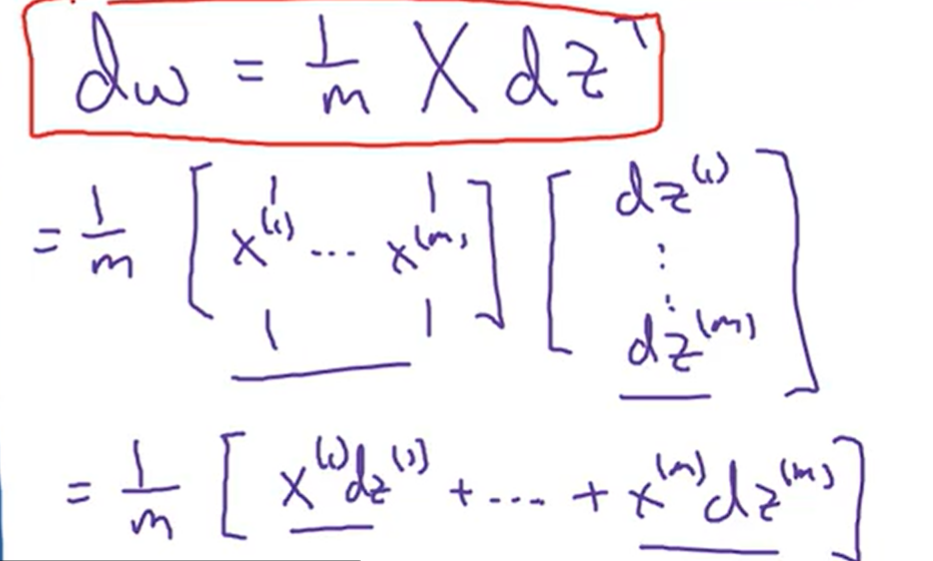 dw = 1/m X dz^T
= 1/m [ x^(1) ... x^(m) ] [ dz^(1) ⋮ dz^(m) ]
= 1/m [ x^(1)dz^(1) + .... + x^(m)dz^(m) ]